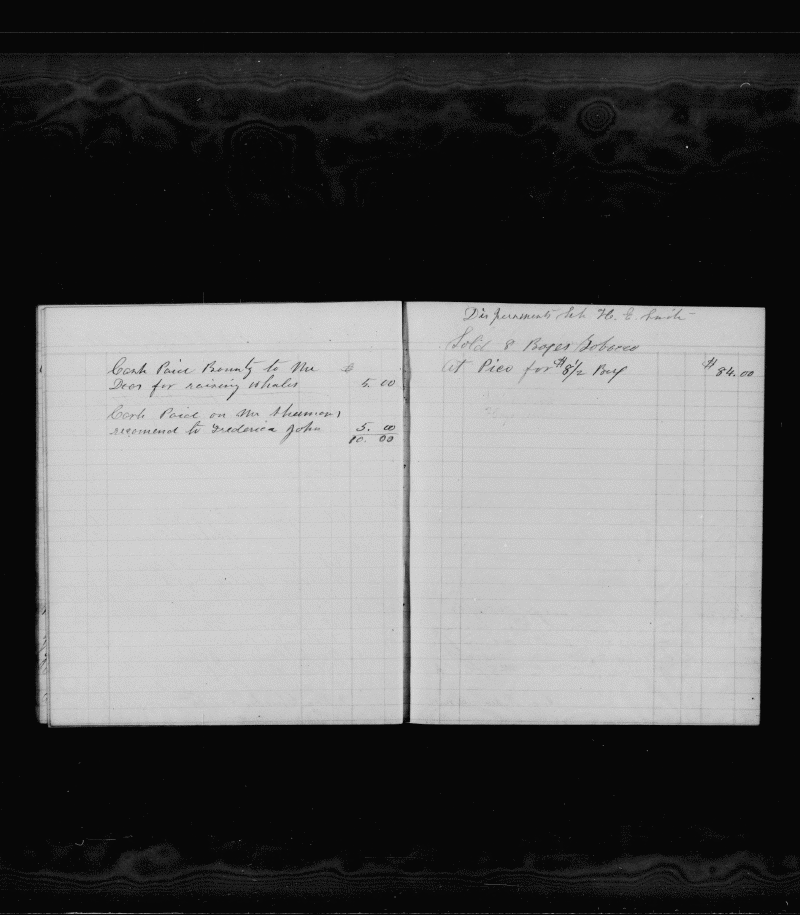 Cash Paid Bounty to Mr $
Dias for raising whales 5. 00
Cash Paid on Mr
recomend to Frederica John 5. 00
10. 00
Disperments H. E. Smith
Sold 8 Boxes Tobacco
At Pico for $8 1/2 Box $84.00